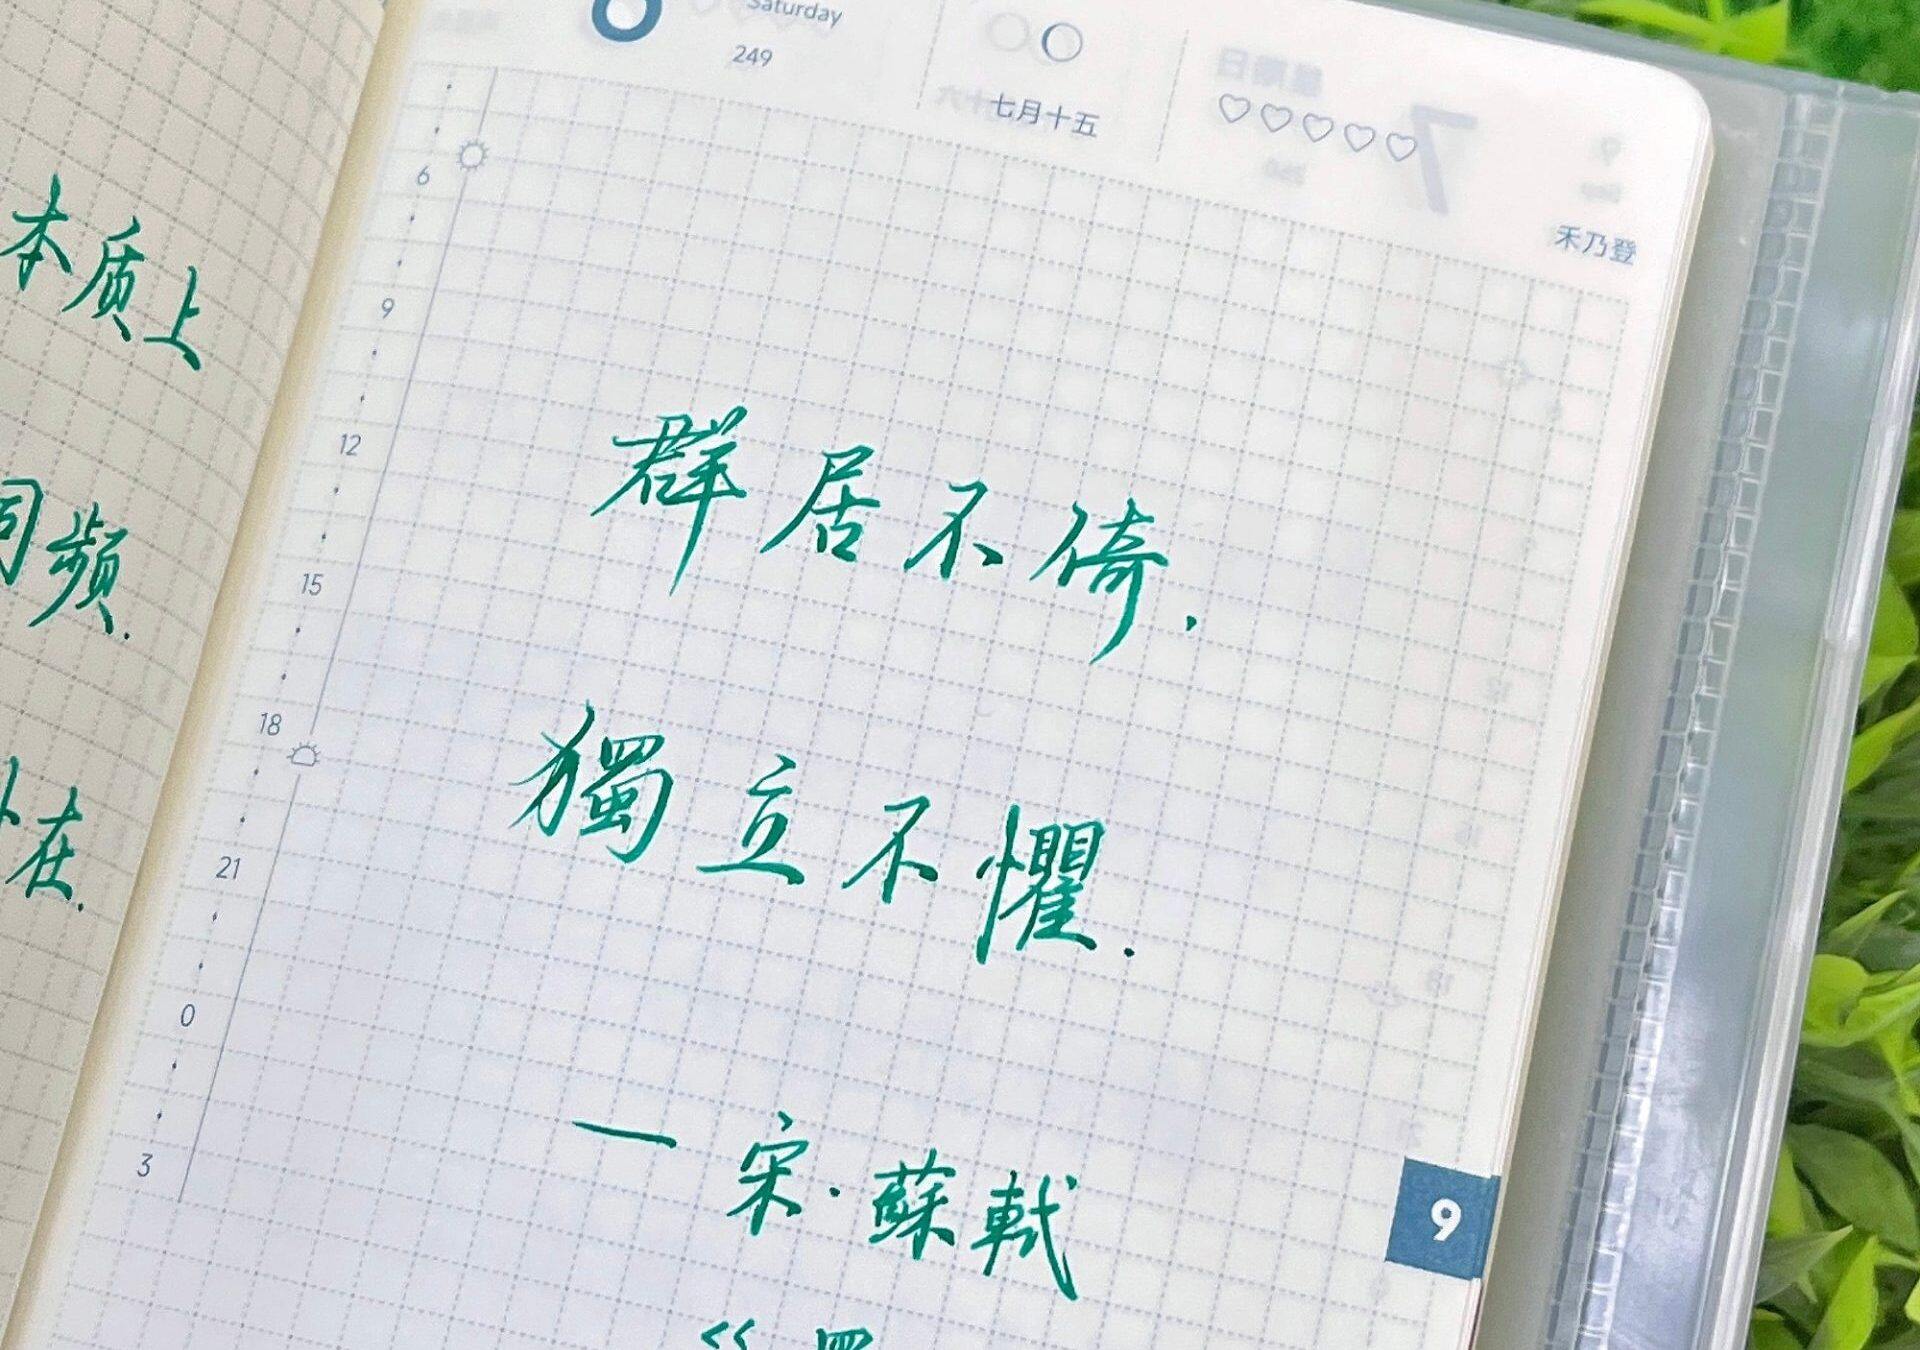 本质上
同频.
外在.
Saturday
249
七月十五
禾乃登
6
9
12
15
18
21
0
3
群居不倚.
獨立不懼.
一宋·蘇軾
《
9